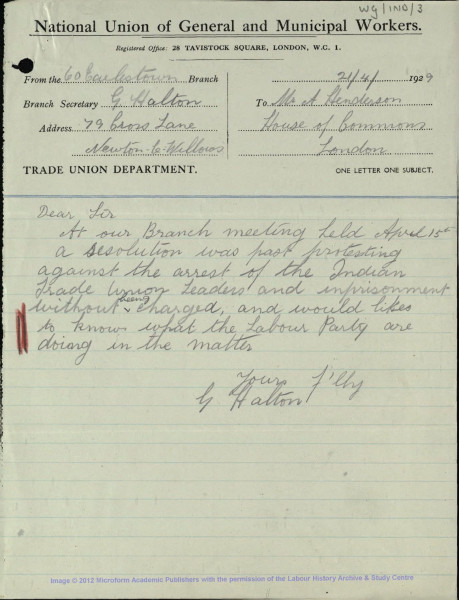 WG/IND/3
National Union of General and Municipal Workers.
Registered Office: 28 TAVISTOCK SQUARE, LONDON, W.C. 1.
From the 60 Earlestown Branch
21/4/ 1929
Branch Secretary G Halton
To Mr A Henderson
Address 79 Cross Lane
House of Commons
Newton-le-Willows
London
TRADE UNION DEPARTMENT.
ONE LETTER ONE SUBJECT.
Dear Sir
At our Branch meeting held April 15th
a resolution was past protesting
against the arrest of the Indian
Trade Union Leaders and imprisonment
without being charged, and would like
to know what the Labour Party are
doing in the matter
Yours f'lly
G Halton
Image © 2012 Microform Academic Publishers with the permission of the Labour History Archive & Study Centre